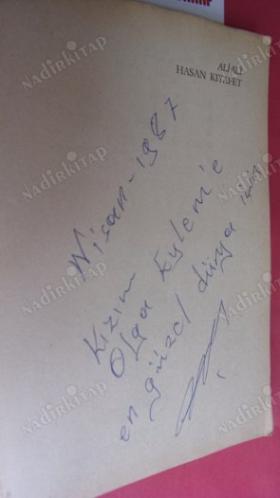 HASAN KIYAFET
Nisan - 1987
Kızım
Olga Eylem'e
en güzel dünya
NADİRKİTAP